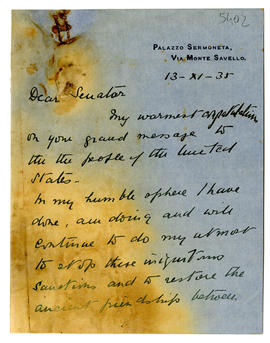 5402
PALAZZO SERMONETA,
VIA MONTE SAVELLO.
13-XI-35
Dear Senator
My warmest
on your grand message to
the the people of the United
States-
In my humble sphere I have
done, am doing and will
continue to do my utmost
to stop these iniquitous
sanctions and to restore the
ancient friendship between